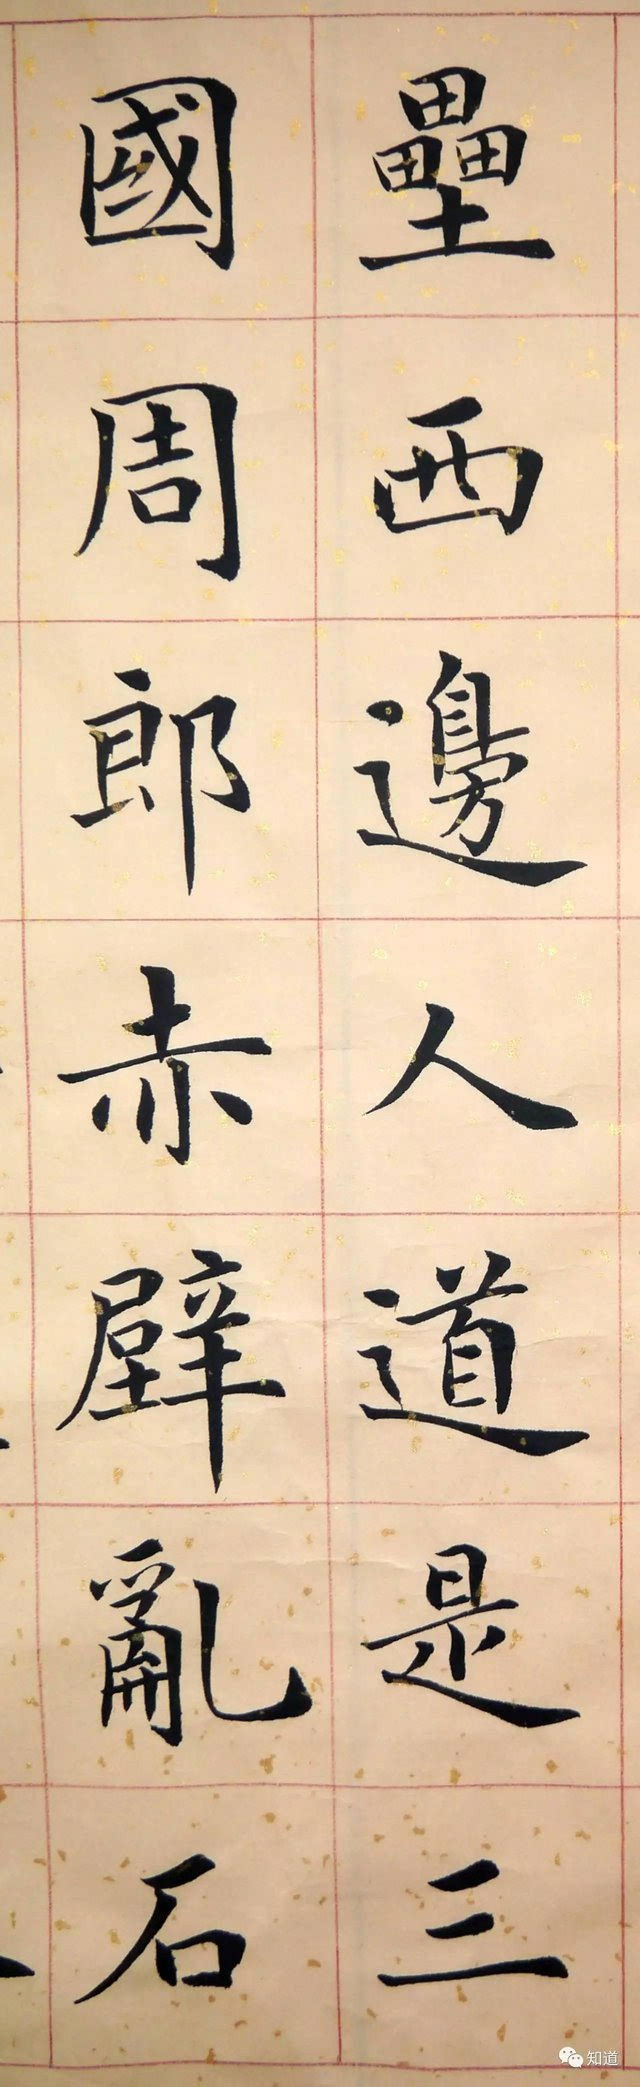 壘西邊人道是三
國周郎赤壁亂石
知道